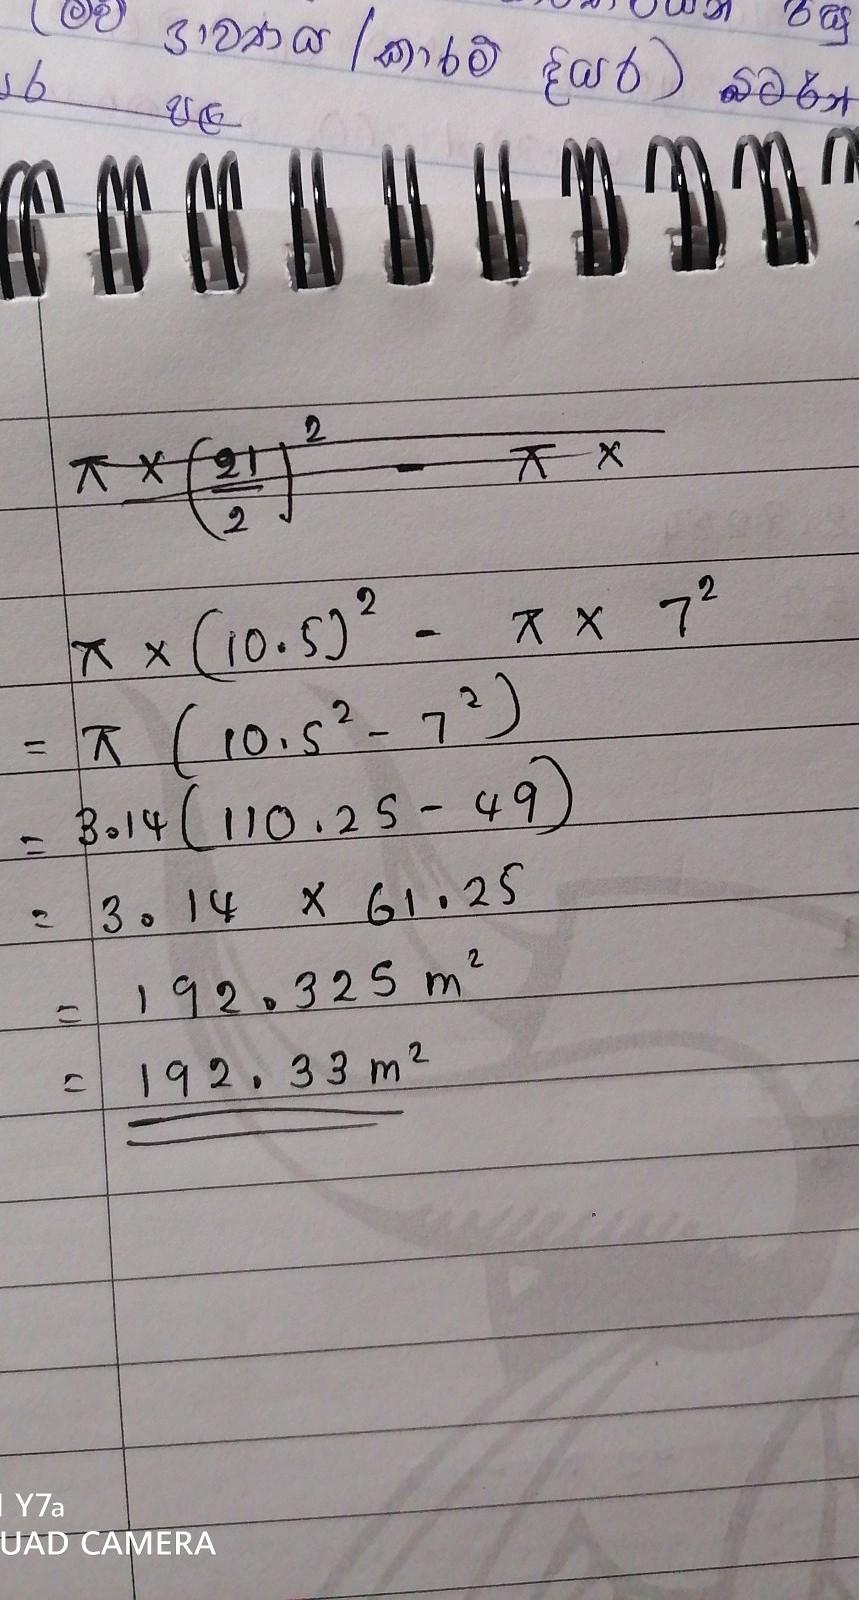 (මව් ද්‍රාවණය / කාරම් දියර)
π × (21/2)² - π ×
π × (10.5)² - π × 7²
= π (10.5² - 7²)
= 3.14 (110.25 - 49)
= 3.14 × 61.25
= 192.325 m²
= 192.33 m²
Y7a
UAD CAMERA